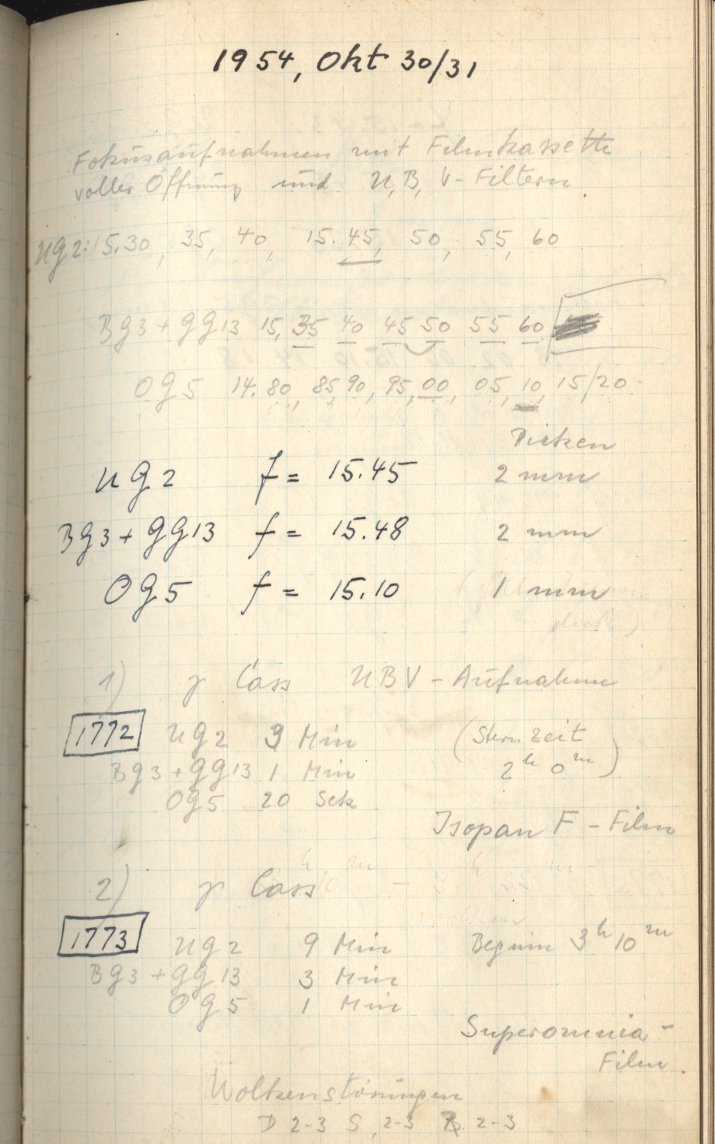 1954, Okt 30/31
Fokusaufnahmen mit Filmkassette
voller Öffnung und U, B, V-Filtern
UG2: 15.30, 35, 40, 15.45, 50, 55, 60
BG3 + GG13 15, 35 40 45 50 55 60
OG5 14.80, 85, 90, 95, 00, 05, 10, 15/20
Dicken
UG2 f = 15.45 2 mm
BG3 + GG13 f = 15.48 2 mm
OG5 f = 15.10 1 mm
1) γ Cass UBV - Aufnahme
1772 UG2 3 Min (Sternzeit
BG3 + GG13 1 Min 2h 0m)
OG5 20 Sek
Isopan F - Film
2) γ Cass
1773 UG2 9 Min Beginn 3h 10m
BG3 + GG13 3 Min
OG5 1 Min
Superomnia -
Film.
Wolkenstörungen
D 2-3 S, 2-3 2-3